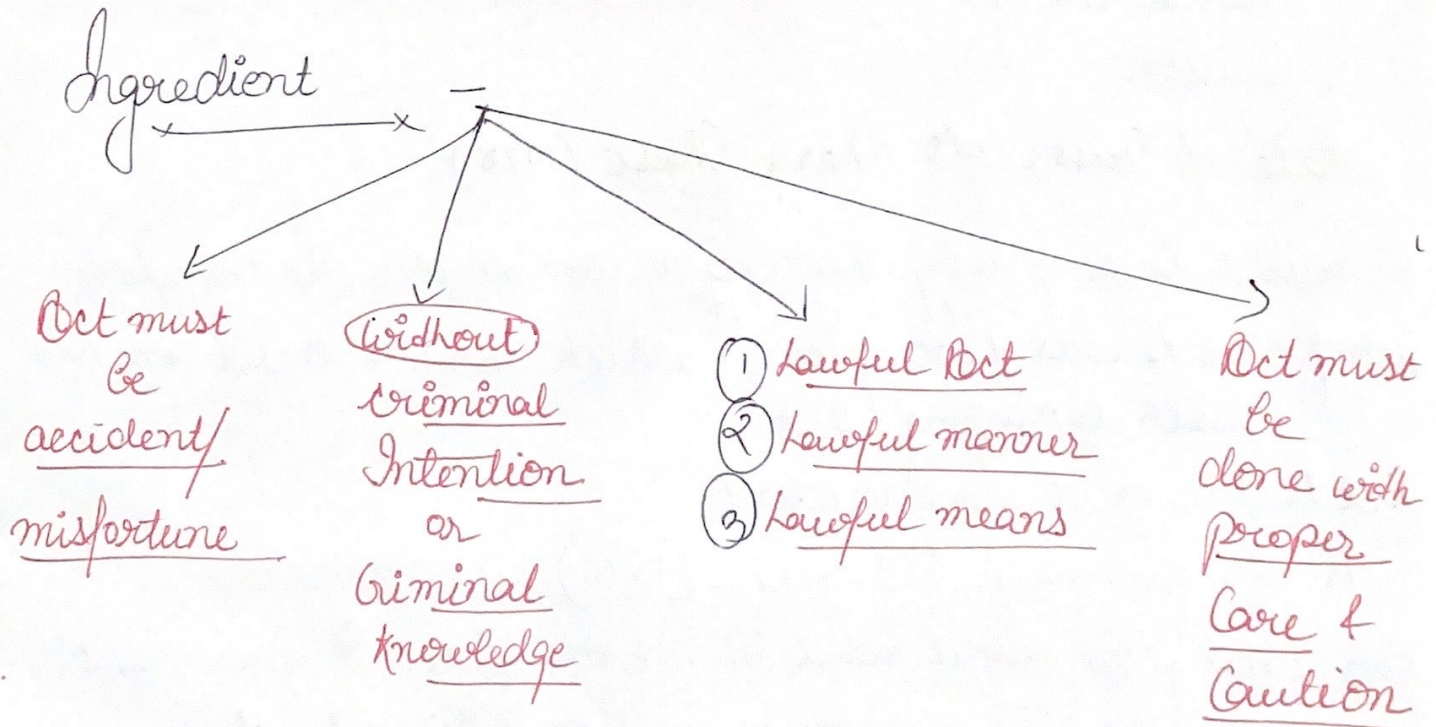 Ingredient -
Act must
be
accident/
misfortune
Without
criminal
Intention
or
Criminal
knowledge
① Lawful Act
② Lawful manner
③ Lawful means
Act must
be
done with
proper
Care &
Caution